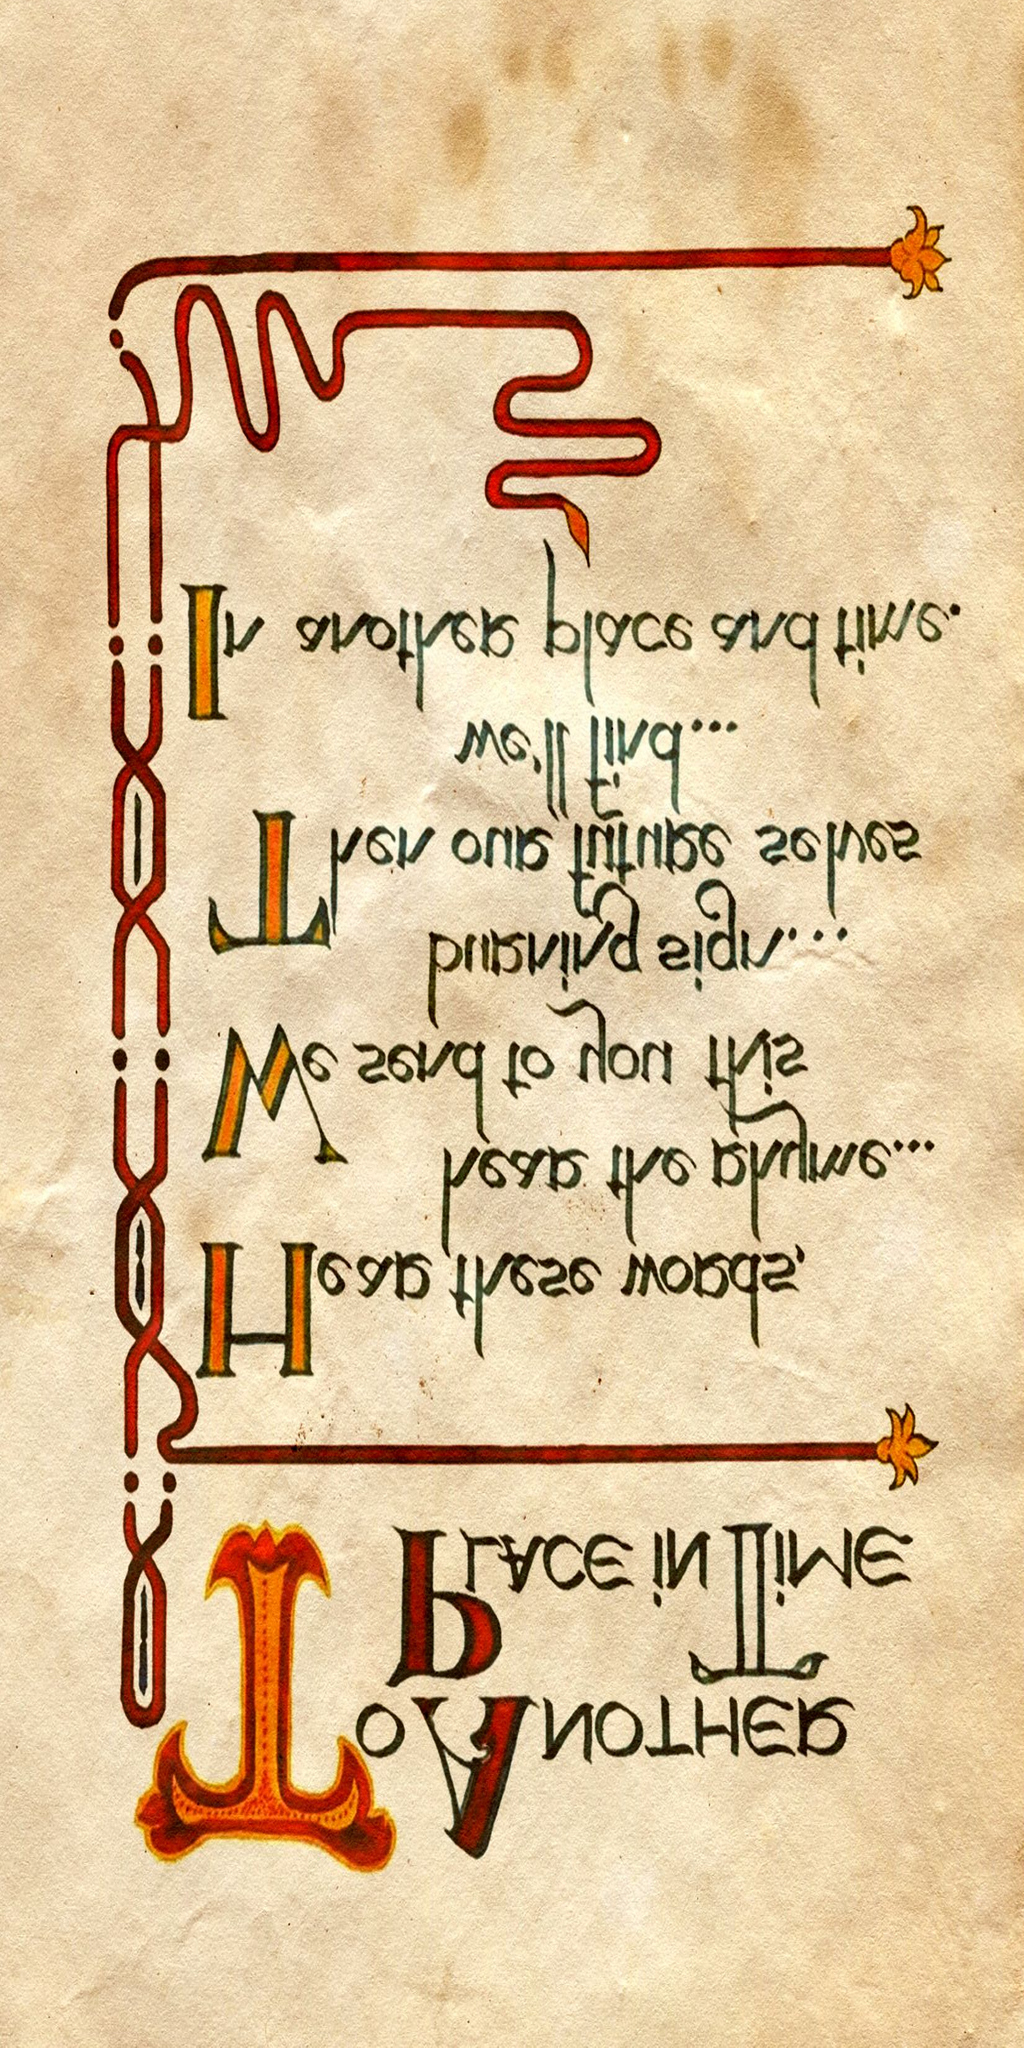 To Another
Place in Time
Hear these words,
hear the rhyme...
We send to you this
burning sign...
Then our future selves
we'll find...
In another place and time.